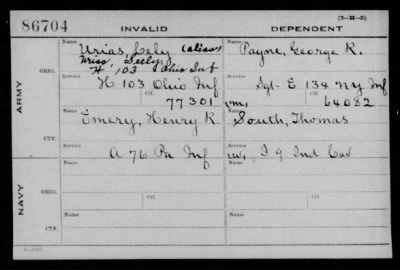 86704 INVALID DEPENDENT (3-H-3)
Name Urias, Lely (alias) Name Payne, George R.
Urias, Seely,
H 103 Ohio Inf
ARMY ORIG. Service H 103 Ohio Inf Service Sgt. E 134 NY Inf
Ctf. 77301 Ctf. 64082
Name Emery, Henry K. Name South, Thomas
CTF. Service A 76 Pa Inf Service I 9 Ind Cav
NAVY
Name Name
ORIG. Service Ctf. Service Ctf.
Name Name
CTF. Service Service